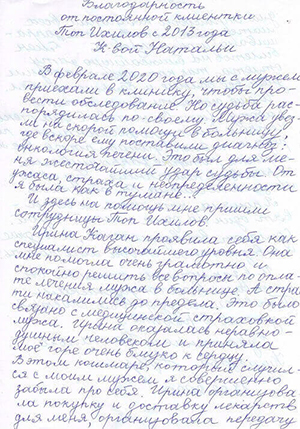 Благодарность
от постоянной клиентки
Топ Ихилов с 2013 года
К-вой Натальи
В феврале 2020 года мы с мужем
приехали в клинику, чтобы про-
вести обследование. Но судьба рас-
порядилась по-своему. Мужа увез-
ли на скорой помощи в больницу,
где вскоре ему поставили диагноз:
онкология печени. Это был для ме-
ня жесточайший удар судьбы. От
ужаса, страха и неопределенности
я была как в тумане...
И здесь на помощь мне пришли
сотрудницы Топ Ихилов.
Ирина Каган проявила себя как
специалист высочайшего уровня. Она
мне помогла очень грамотно и
спокойно решить все вопросы по опла-
те лечения мужа в больнице. А стра-
сти накалились до предела. Это было
связано с медицинской страховкой
мужа. Ирина оказалась неравно-
душным человеком и приняла
моё горе очень близко к сердцу.
В этом кошмаре, который случил-
ся с моим мужем я совершенно
забыла про себя. Ирина организова-
ла покупку и доставку лекарств
для меня, организовала передачу